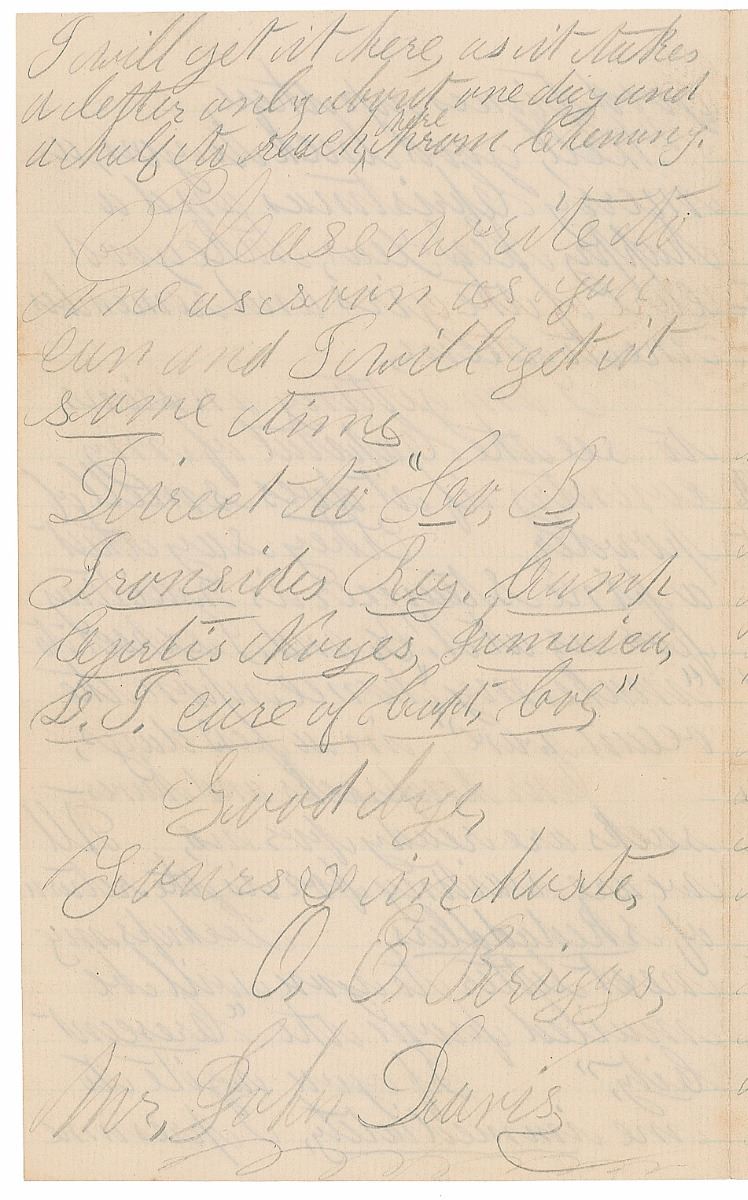 I will get it here, as it takes
a letter only about one day and
a half to reach here from Chemung.
Please write to
me as soon as you
can and I will get it
some time
Direct to "Co. B.
Ironsides Reg. Camp
Curtis Noyes, Jamaica,
L. I. care of Capt, Coe,"
Good bye,
Yours &c in haste,
O. C. Briggs,
Mr, John Davis,